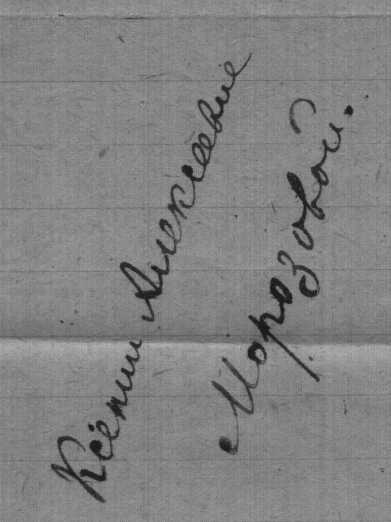 Ксении Алексеевне
Морозовой.